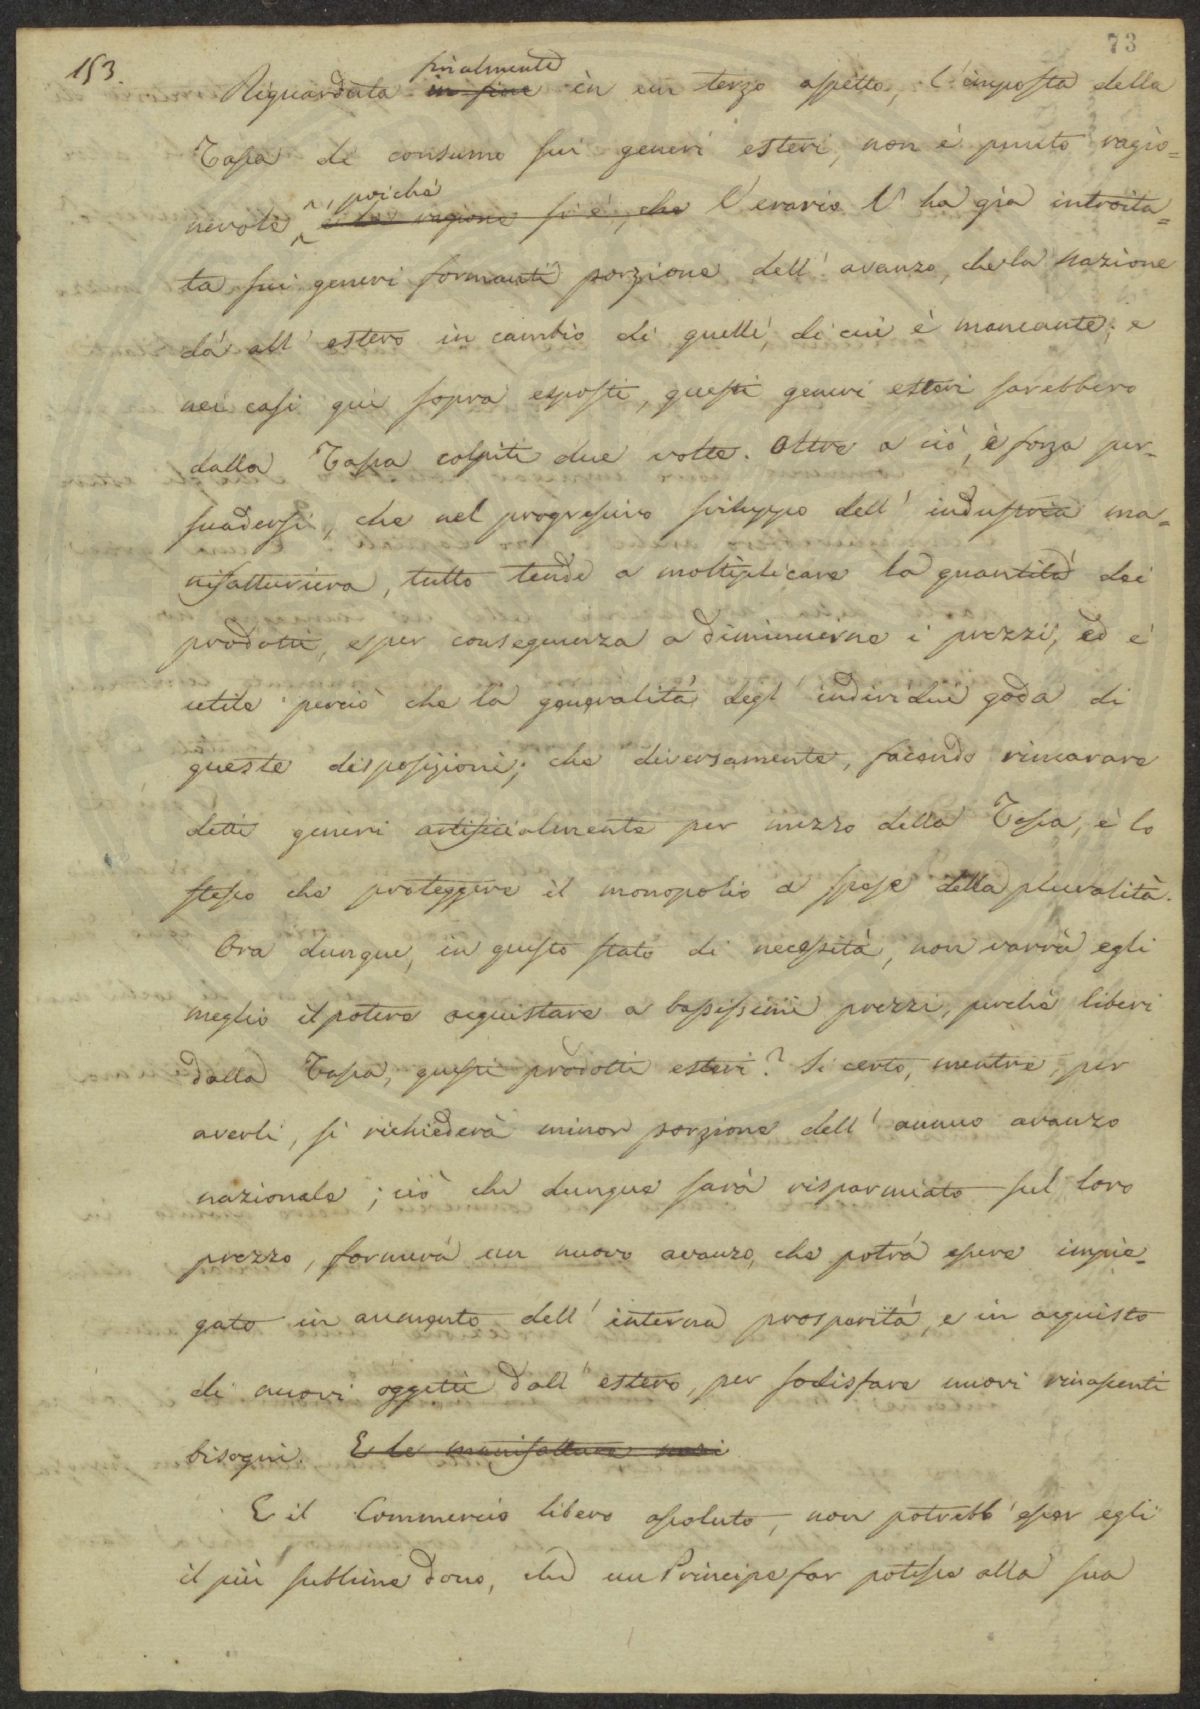 73
153.
finalmente
Riguardata in fine in un terzo aspetto, l'imposta della
Tassa di consumo sui generi esteri, non è punto ragio=
poiché
nevole, e la ragione si è, che l'erario l'ha già introita=
ta sui generi formanti porzione dell'avanzo, che la nazione
dà all'estero in cambio di quelli, di cui è mancante; e
nei casi qui sopra esposti, questi generi esteri sarebbero
dalla Tassa colpiti due volte. Oltre a ciò, è forza per=
suadersi, che nel progressivo sviluppo dell'industria ma=
nifatturiera, tutto tende a moltiplicare la quantità dei
prodotti, e per conseguenza a diminuirne i prezzi, ed è
utile perciò che la generalità degl'individui goda di
queste disposizioni; che diversamente, facendo rincarare
detti generi artificialmente per mezzo della Tassa, è lo
stesso che proteggere il monopolio a spese della pluralità.
Ora dunque, in questo stato di necessità, non varrà egli
meglio il potere acquistare a bassissimi prezzi, perchè liberi
dalla Tassa, questi prodotti esteri? Sì certo, mentre, per
averli, si richiederà minor porzione dell'annuo avanzo
nazionale; ciò che dunque sarà risparmiato sul loro
prezzo, formerà un nuovo avanzo, che potrà essere impie=
gato in aumento dell'interna prosperità, e in acquisto
di nuovi oggetti dall'estero, per sodisfare nuovi rinascenti
bisogni. E le manifatture
E il Commercio libero assoluto, non potrebb'esser egli
il più sublime dono, che un Principe far potesse alla sua